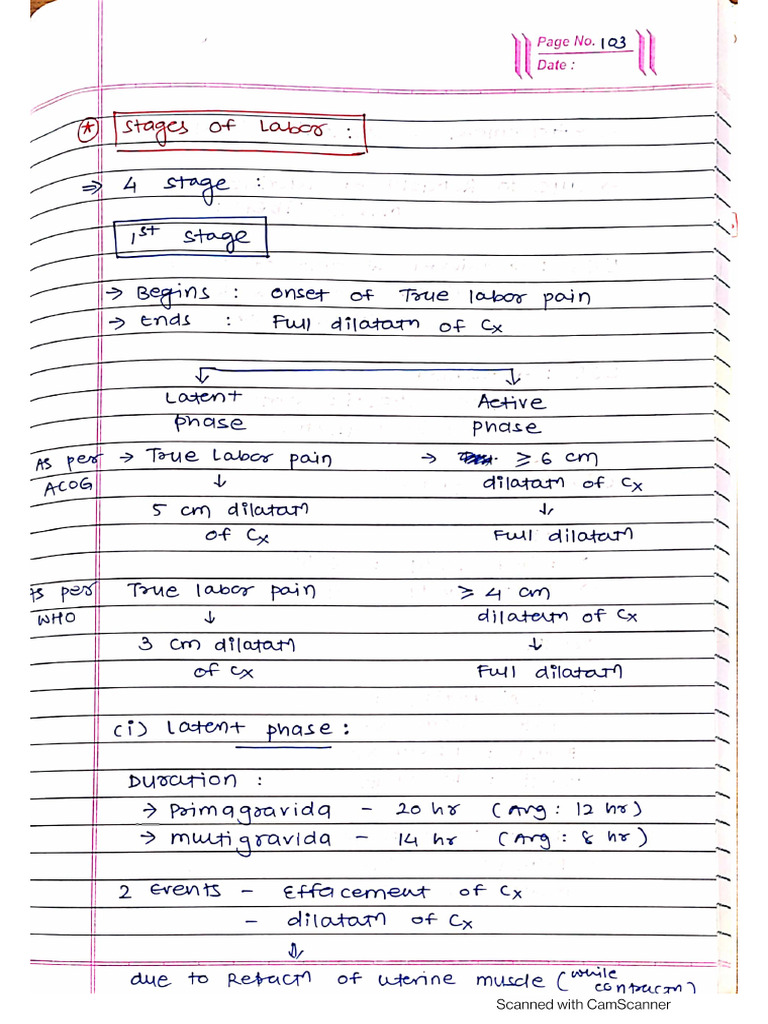 Page No. 103
Date :
* Stages of Labor :
⇒ 4 Stage :
1st Stage
→ Begins : onset of True labor pain
→ Ends : Full dilatatn of Cx
Latent phase
Active phase
As per ACOG
→ True Labor pain
↓
5 cm dilatatn of Cx
→ ≥ 6 cm dilatatn of Cx
↓
Full dilatatn
As per WHO
True labor pain
↓
3 cm dilatatn of Cx
≥ 4 cm dilatatn of Cx
↓
Full dilatatn
(i) Latent phase :
Duration :
→ Primagravida - 20 hr (Avg : 12 hr)
→ multigravida - 14 hr (Avg : 8 hr)
2 Events - Effacement of Cx
- dilatatn of Cx
⇓
due to Retractn of uterine muscle (while contractn)
Scanned with CamScanner